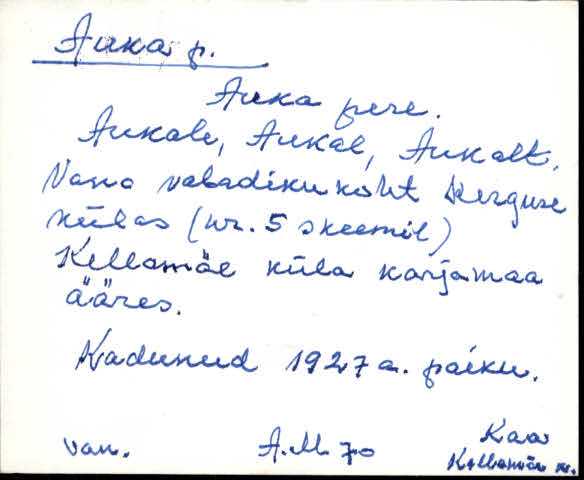 Auka p.
Auka pere.
Aukale, Aukal, Aukalt.
Vana vabadikukoht Kerguse
külas (nr. 5 skeemil)
Kellamäe küla karjamaa
ääres.
Kadunud 1927 a. paiku.
van. A.M 70 Kaa
Kellamäe k.